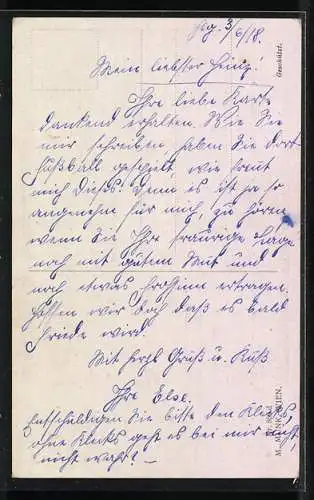 3/6/18.
Mein liebster Heinz!
Ihre liebe Karte
dankend erhalten. Wie Sie
mir schreiben, haben Sie dort
Fußball gespielt, wie freut
mich dieses. Denn es ist ja so
angenehm für mich, zu hören
wenn Sie Ihre traurige Lage
noch mit gutem Mut und
noch etwas Frohsinn ertragen.
Hoffen wir doch daß es bald
Friede wird.
Mit herzl Gruß u. Kuß
Ihre Else.
Entschuldigen Sie bitte den Klecks,
ohne Klecks geht es bei mir nicht,
nicht wahr? –
Geschützt.
M. MUNK, WIEN.